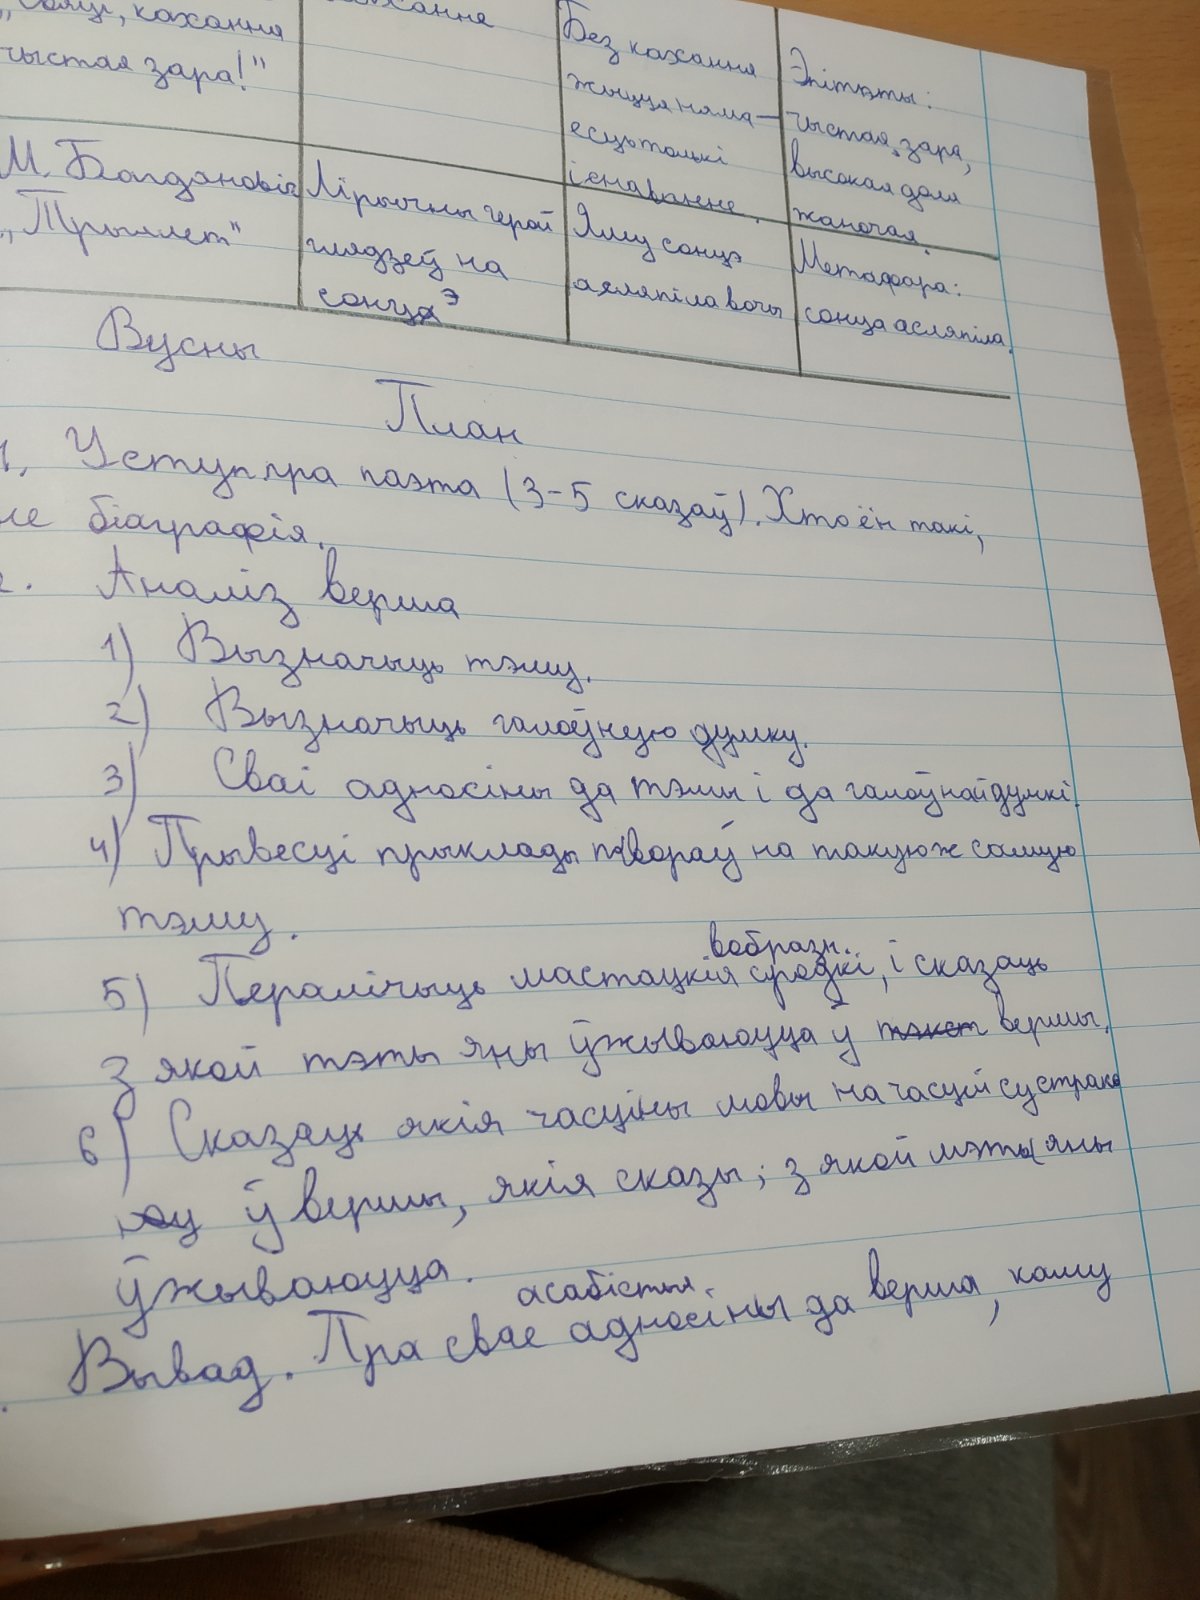 кахання
чыстая зара!"
Без кахання
жыцця няма —
есць толькі
існаванне.
Эпітэты:
чыстая зара,
высокая доля
жаночая.
М. Багдановіч
„Трыялет"
Лірычны герой
глядзеў на
сонца э
Яму сонцэ
асляпіла вочы
Метафара:
сонца асляпіла.
Вусны
План
1. Уступ пра паэта (3-5 сказаў). Хто ён такі,
не біаграфія.
2. Аналіз верша
1) Вызначыць тэму.
2) Вызначыць галоўную думку.
3) Сваі адносіны да тэмы і да галоўнай думкі.
4) Прывесці прыклады твораў на такую ж самую
тэму.
вобразн.
5) Пералічыць мастацкія сродкі, і сказаць
з якой тэты яны ўжываюцца ў тэкст вершы.
6) Сказаць якія часціны мовы начасцей сустрака
юц ў вершы, якія сказы; з якой мэты яны
ўжываюцца.
асабістыя
Вывад. Пра свае адносіны да верша, каму